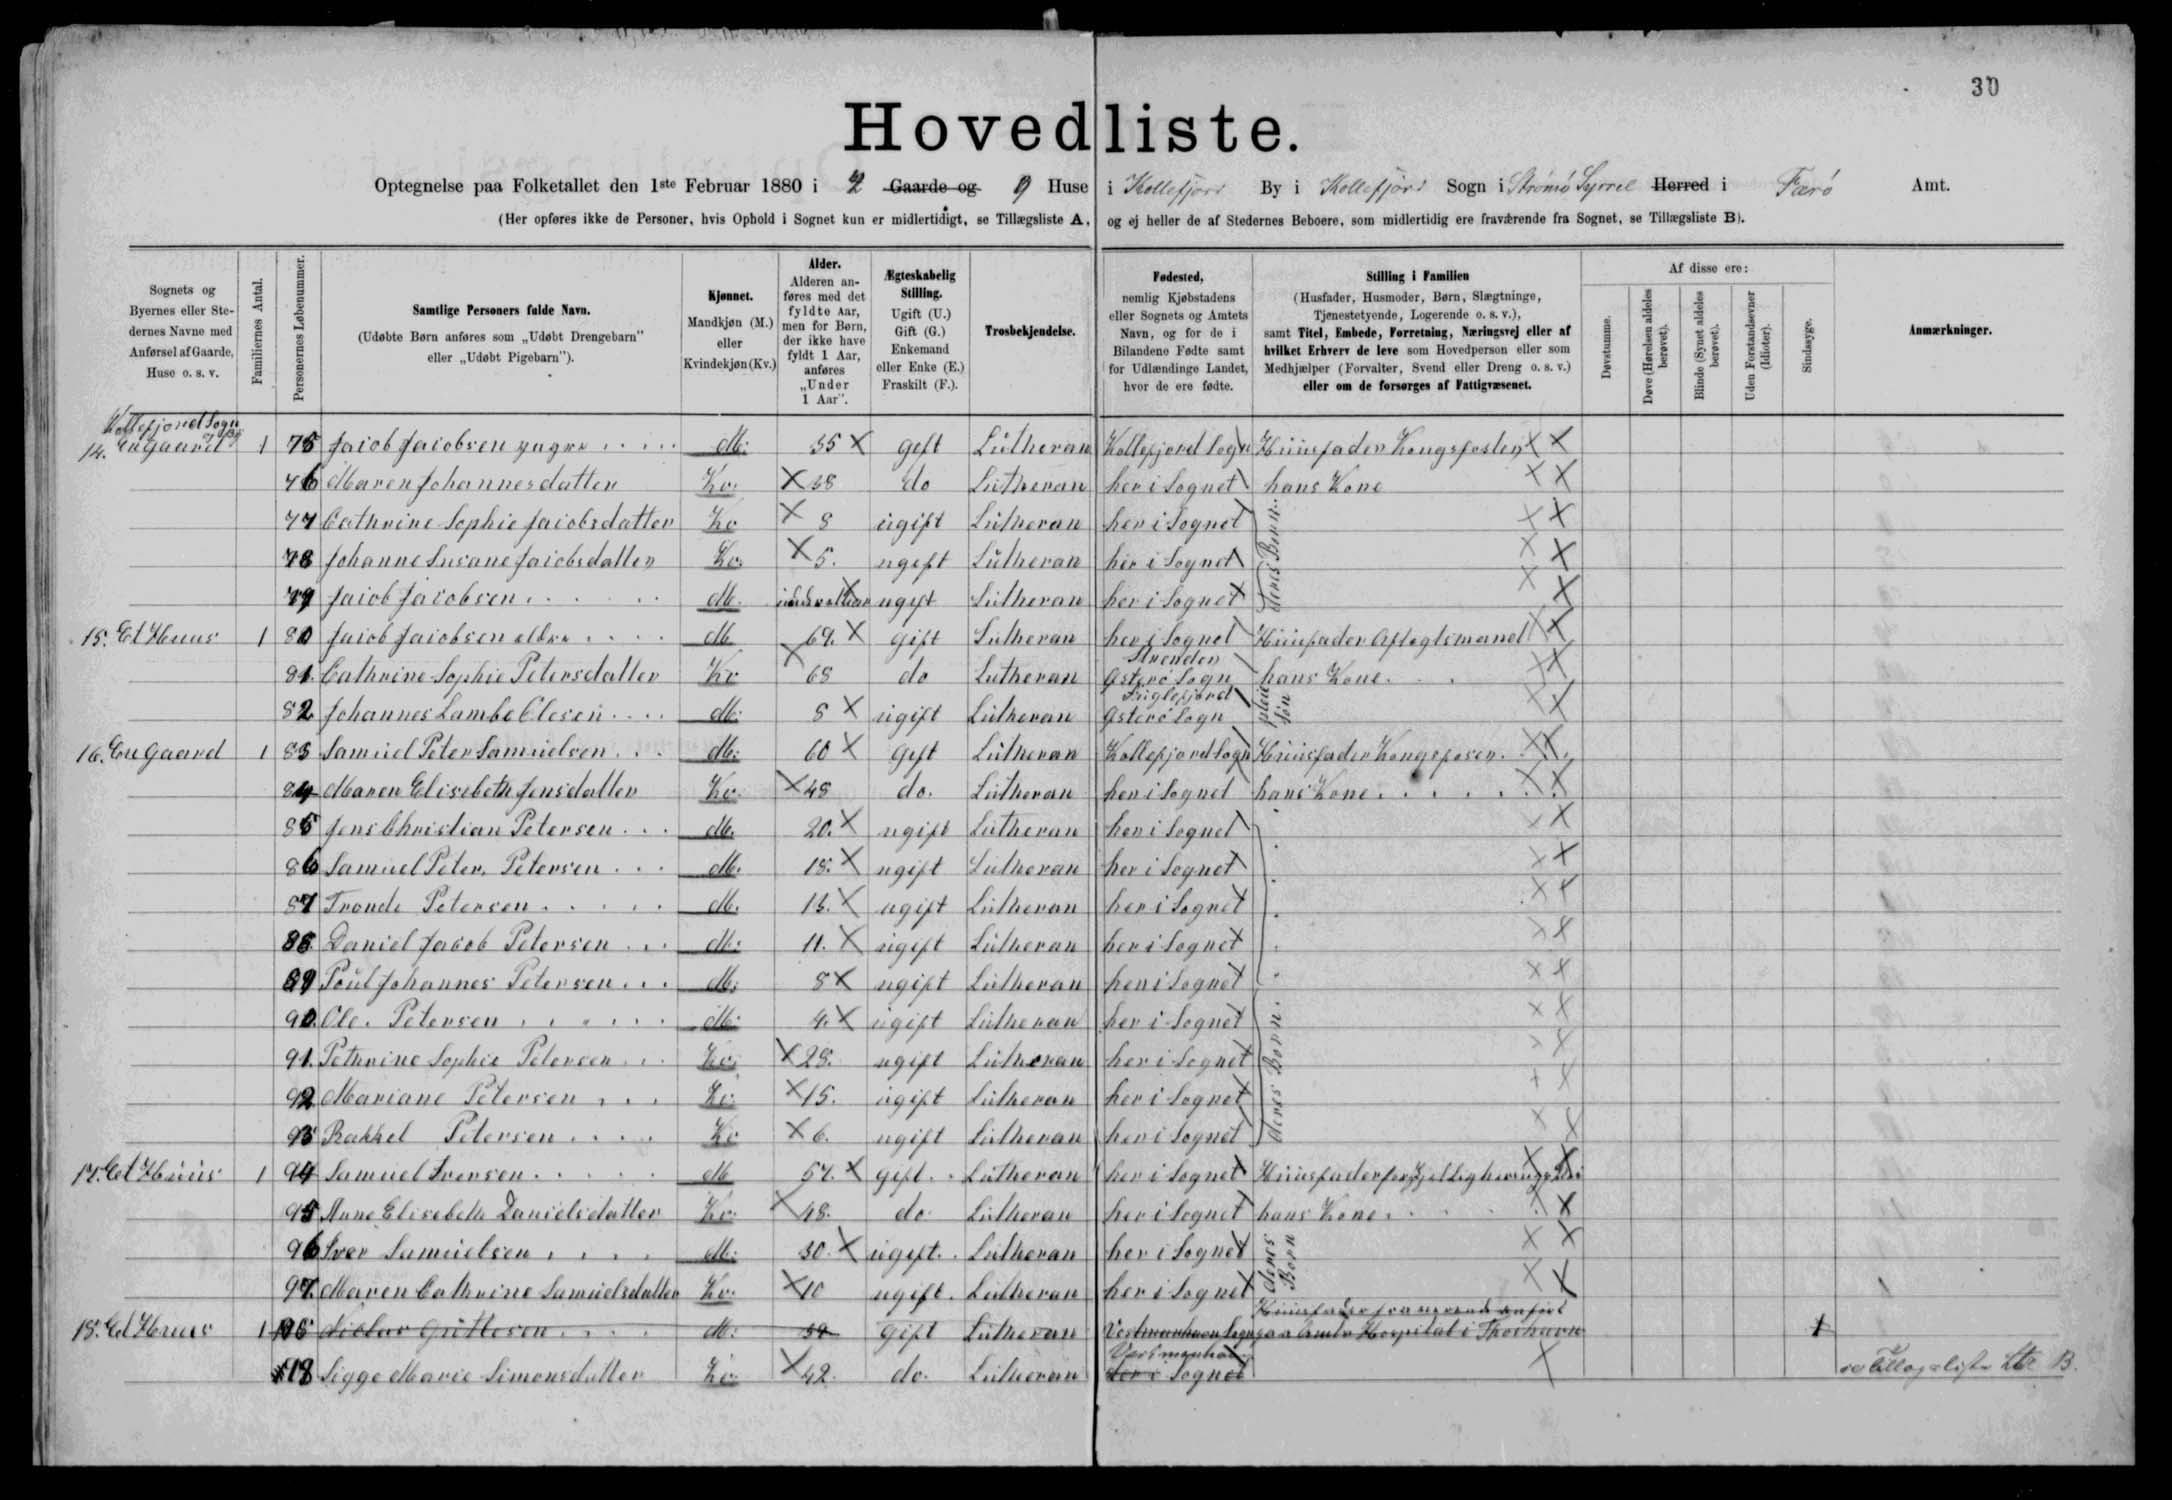 30
Hovedliste.
Optegnelse paa Folketallet den 1ste Februar 1880 i 2 Gaarde og 9 Huse i Kollefjord By i Kollefjörd Sogn i Strömö Syssel Herred i Færö Amt.
(Her opføres ikke de Personer, hvis Ophold i Sognet kun er midlertidigt, se Tillægsliste A, og ej heller de af Stedernes Beboere, som midlertidig ere fraværende fra Sognet, se Tillægsliste B).
Sognets og Byernes eller Stedernes Navne med Anførsel af Gaarde, Huse o. s. v.
Familiernes Antal.
Personernes Løbenummer.
Samtlige Personers fulde Navn. (Udøbte Børn anføres som „Udøbt Drengebarn" eller „Udøbt Pigebarn").
Kjønnet. Mandkjøn (M.) eller Kvindekjøn (Kv.)
Alder. Alderen anføres med det fyldte Aar, men for Børn, der ikke have fyldt 1 Aar, anføres „Under 1 Aar".
Ægteskabelig Stilling. Ugift (U.) Gift (G.) Enkemand eller Enke (E.) Fraskilt (F.).
Trosbekjendelse.
Fødested, nemlig Kjøbstadens eller Sognets og Amtets Navn, og for de i Bilandene Fødte samt for Udlændinge Landet, hvor de ere fødte.
Stilling i Familien (Husfader, Husmoder, Børn, Slægtninge, Tjenestetyende, Logerende o. s. v.), samt Titel, Embede, Forretning, Næringsvej eller af hvilket Erhverv de leve som Hovedperson eller som Medhjælper (Forvalter, Svend eller Dreng o. s. v.) eller om de forsørges af Fattigvæsenet.
Af disse ere:
Døvstumme.
Døve (Hørelsen aldeles berøvet).
Blinde (Synet aldeles berøvet).
Uden Forstandsevner (Idioter).
Sindssyge.
Anmærkninger.
Kollefjord Sogn og By
14. En Gaard 1 75 Jacob Jacobsen yngre M. 35 X gift Lutheran Kollefjord Sogn Huusfader Kongsfester X X
76 Maren Johannesdatter Kv. X 38 do Lutheran her i Sognet hans Kone X X
77 Cathrine Sophie Jacobsdatter Kv X 8 ugift Lutheran her i Sognet deres Børn X X
78 Johanne Susane Jacobsdatter Kv. X 5. ugift Lutheran her i Sognet X X
79 Jacob Jacobsen M. under et Aar ugift Lutheran her i Sognet X X
15. Et Huus 1 80 Jacob Jacobsen eldre M 69. X gift Lutheran her i Sognet Huusfader Aftegtsmand X X
81. Cathrine Sophie Petersdatter Kv X 68 do Lutheran Strender Østerö Sogn hans Kone. X X
82 Johannes Lambe Olesen M. 8 X ugift Lutheran Fuglefjord Østerö Sogn pleie Søn X X
16. En Gaard 1 83 Samuel Peter Samuelsen M. 60 X Gift Lutheran Kollefjord Sogn Huusfader Kongsfester. X X
84 Maren Elisebeth Jensdatter Kv. X 48 do. Lutheran her i Sognet hans Kone X X
85 Jens Christian Petersen M. 20. X ugift Lutheran her i Sognet X X
86 Samuel Peter Petersen M. 18. X ugift Lutheran her i Sognet X X
87 Tronde Petersen M. 13. X ugift Lutheran her i Sognet X X
88 Daniel Jacob Petersen M. 11. X ugift Lutheran her i Sognet X X
89 Poul Johannes Petersen M. 8 X ugift Lutheran her i Sognet X X
90. Ole Petersen M. 4. X ugift Lutheran her i Sognet X X
91. Pethrine Sophie Petersen Kv. X 28. ugift Lutheran her i Sognet deres Børn. X X
92. Mariane Petersen Kv. X 15. ugift Lutheran her i Sognet X X
93 Rakkel Petersen Kv X 6. ugift Lutheran her i Sognet X X
17. Et Huus 1 94 Samuel Iversen M 57. X gift Lutheran her i Sognet Huusfader X X
95 Anne Elisebeth Danielsdatter Kv. X 48. do. Lutheran her i Sognet hans Kone X
96 Iver Samuelsen M. 30. X ugift Lutheran her i Sognet deres Børn X X
97. Maren Cathrine Samuelsdatter Kv. X 10 ugift. Lutheran her i Sognet X X
18. Et Huus 1 Guttesen M. gift Lutheran Vestmanhavn Sogn Huusfader fraverende anført paa Amts Hospital i Thorshavn 1
98 Sigge Marie Simonsdatter Kv. X 42. do. Lutheran Vestmanhavn her i Sognet X se Tillægsliste Ltr B.